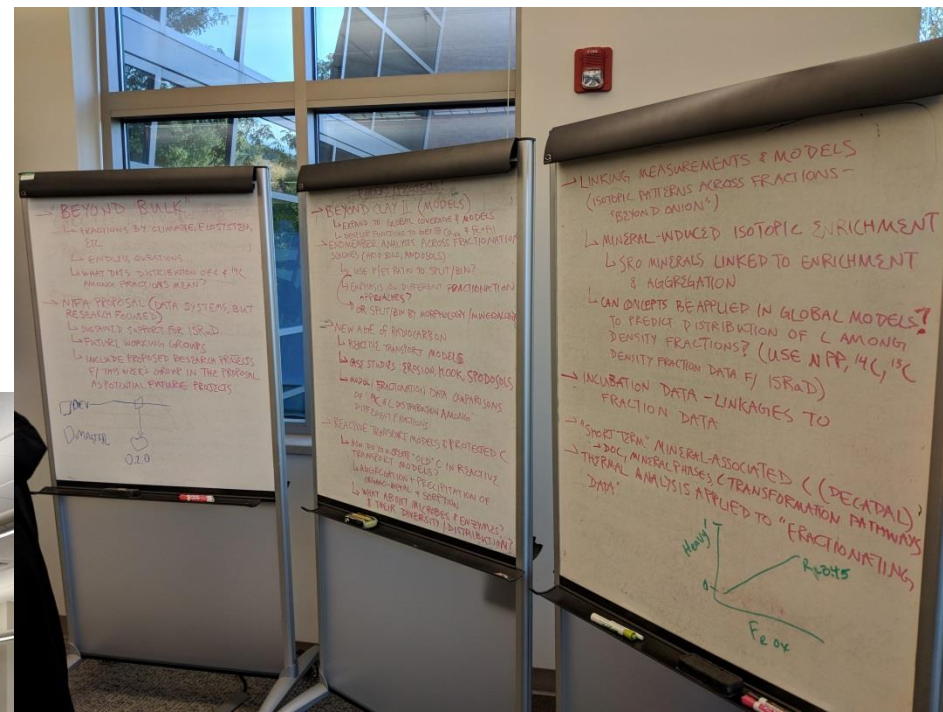 → "BEYOND BULK"
↳ FRACTIONS BY CLIMATE, ECOSYSTEM,
ETC.
↳ ENDLESS QUESTIONS
↳ WHAT DOES DISTRIBUTION OF C & 14C
AMONG FRACTIONS MEAN?
→ PROPOSAL (DATA SYSTEMS, BUT
RESEARCH FOCUSED)
↳ SUSTAINED SUPPORT FOR ISRaD
↳ FUTURE WORKING GROUPS
↳ INCLUDE PROPOSED RESEARCH PROJECTS
F/ THIS WEEK'S GROUP IN THE PROPOSAL
AS POTENTIAL FUTURE PROJECTS
DEV
MASTER
0.2.0
→ BEYOND CLAY II (MODELS)
↳ EXPAND TO GLOBAL COVERAGE & MODELS
↳ DEVELOP FUNCTIONS TO GET @
→ ENDMEMBER ANALYSIS ACROSS FRACTIONATION
STUDIES (ANDISOLS)
↳ USE P/ET RATIO TO SPLIT/BIN?
↳ EMPHASIS ON DIFFERENT FRACTIONATION
APPROACHES?
↳ OR SPLIT/BIN BY MORPHOLOGY/MINERALOGY
→ NEW AGE OF RADIOCARBON
↳ REACTIVE TRANSPORT MODELS
↳ CASE STUDIES: EROSION, HOOK, SPODOSOLS
↳ MODEL/FRACTIONATION DATA COMPARISONS
OF 14C & C DISTRIBUTION AMONG
DIFFERENT FRACTIONS
→ REACTIVE TRANSPORT MODELS & PROTECTED C
↳ HOW DO YOU CREATE "OLD" C IN REACTIVE
TRANSPORT MODELS?
↳ AGGREGATION & PRECIPITATION OF
ORGANO-METAL & SORPTION
↳ WHAT ABOUT MICROBES & ENZYMES?
& THEIR DIVERSITY/DISTRIBUTION?
→ LINKING MEASUREMENTS & MODELS
(ISOTOPIC PATTERNS ACROSS FRACTIONS -
"BEYOND ONION")
↳ MINERAL-INDUCED ISOTOPIC ENRICHMENT
↳ SRO MINERALS LINKED TO ENRICHMENT
& AGGREGATION
↳ CAN CONCEPTS BE APPLIED IN GLOBAL MODELS?
TO PREDICT DISTRIBUTION OF C AMONG
DENSITY FRACTIONS? (USE NPP, 14C, 13C
DENSITY FRACTION DATA F/ ISRaD)
→ INCUBATION DATA - LINKAGES TO
FRACTION DATA
→ "SHORT TERM" MINERAL-ASSOCIATED C (DECADAL)
→ DOC, MINERAL PHASES, C TRANSFORMATION PATHWAYS
→ THERMAL ANALYSIS APPLIED TO "FRACTIONATING
DATA"
Heavy
1
0
Fe ox